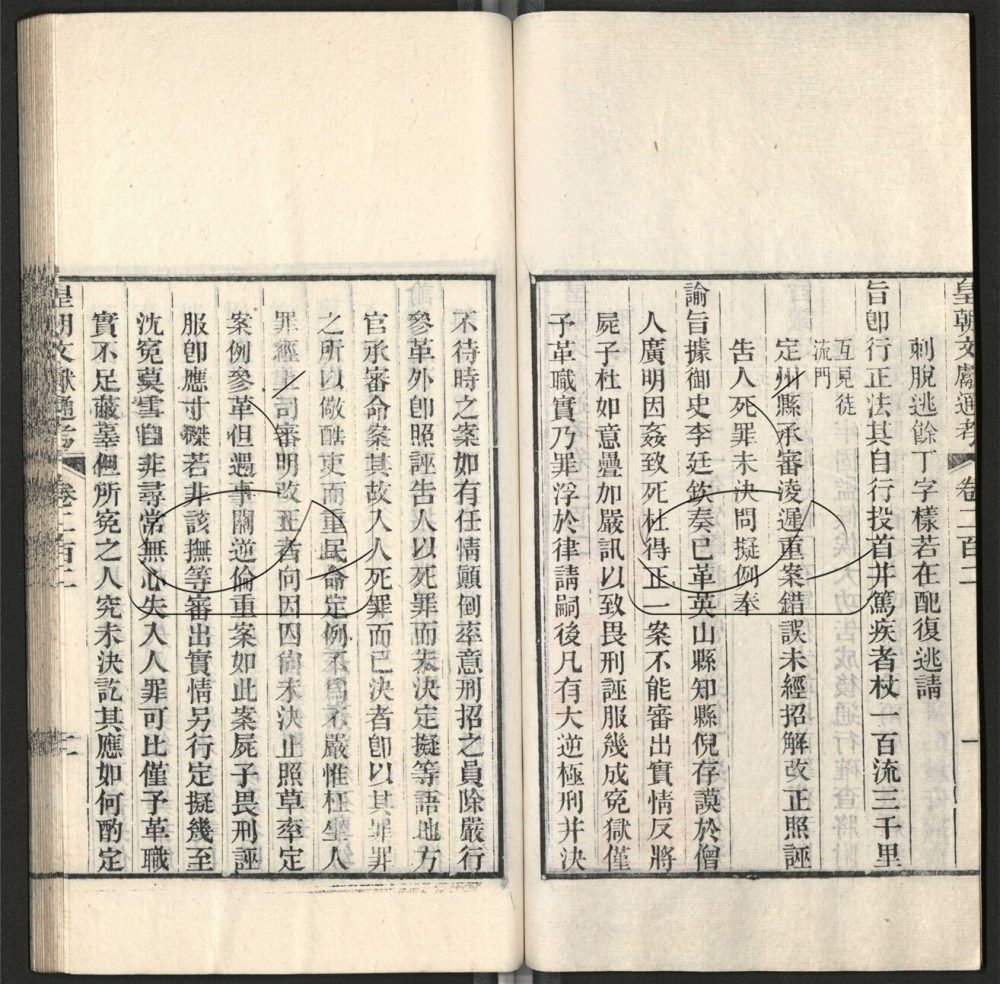 皇朝文獻通考 卷二百二 一
刺脫逃餘丁字樣若在配復逃請
旨卽行正法其自行投首并篤疾者杖一百流三千里
互見徒
流門
定州縣承審凌遲重案錯誤未經招解改正照誣
告人死罪未決問擬例奉
諭旨據御史李廷欽奏已革英山縣知縣倪存謨於僧
人廣明因姦致死杜得正一案不能審出實情反將
屍子杜如意疊加嚴訊以致畏刑誣服幾成冤獄僅
予革職實乃罪浮於律請嗣後凡有大逆極刑并決
不待時之案如有任情顚倒率意刑招之員除嚴行
參革外卽照誣告人以死罪而未決定擬等語地方
官承審命案其故入人死罪而已決者卽以其罪罪
之所以儆酷吏而重民命定例不爲不嚴惟枉坐人
罪經上司審明改正者向因囚尙未決止照草率定
案例參革但遇事關逆倫重案如此案屍子畏刑誣
服卽應寸磔若非該撫等審出實情另行定擬幾至
沈冤莫雪自非尋常無心失入人罪可比僅予革職
實不足蔽辜但所冤之人究未決訖其應如何酌定
皇朝文獻通考 卷二百二